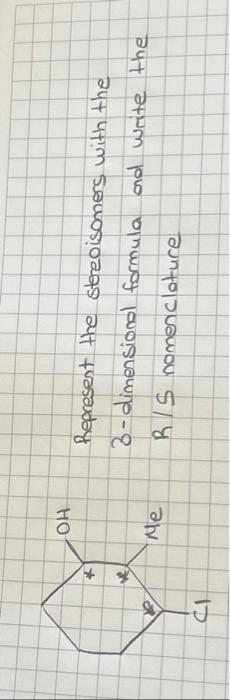 Represent the stereoisomers with the
3-dimensional formula and write the
R/S nomenclature
OH
*
*
Me
*
Cl